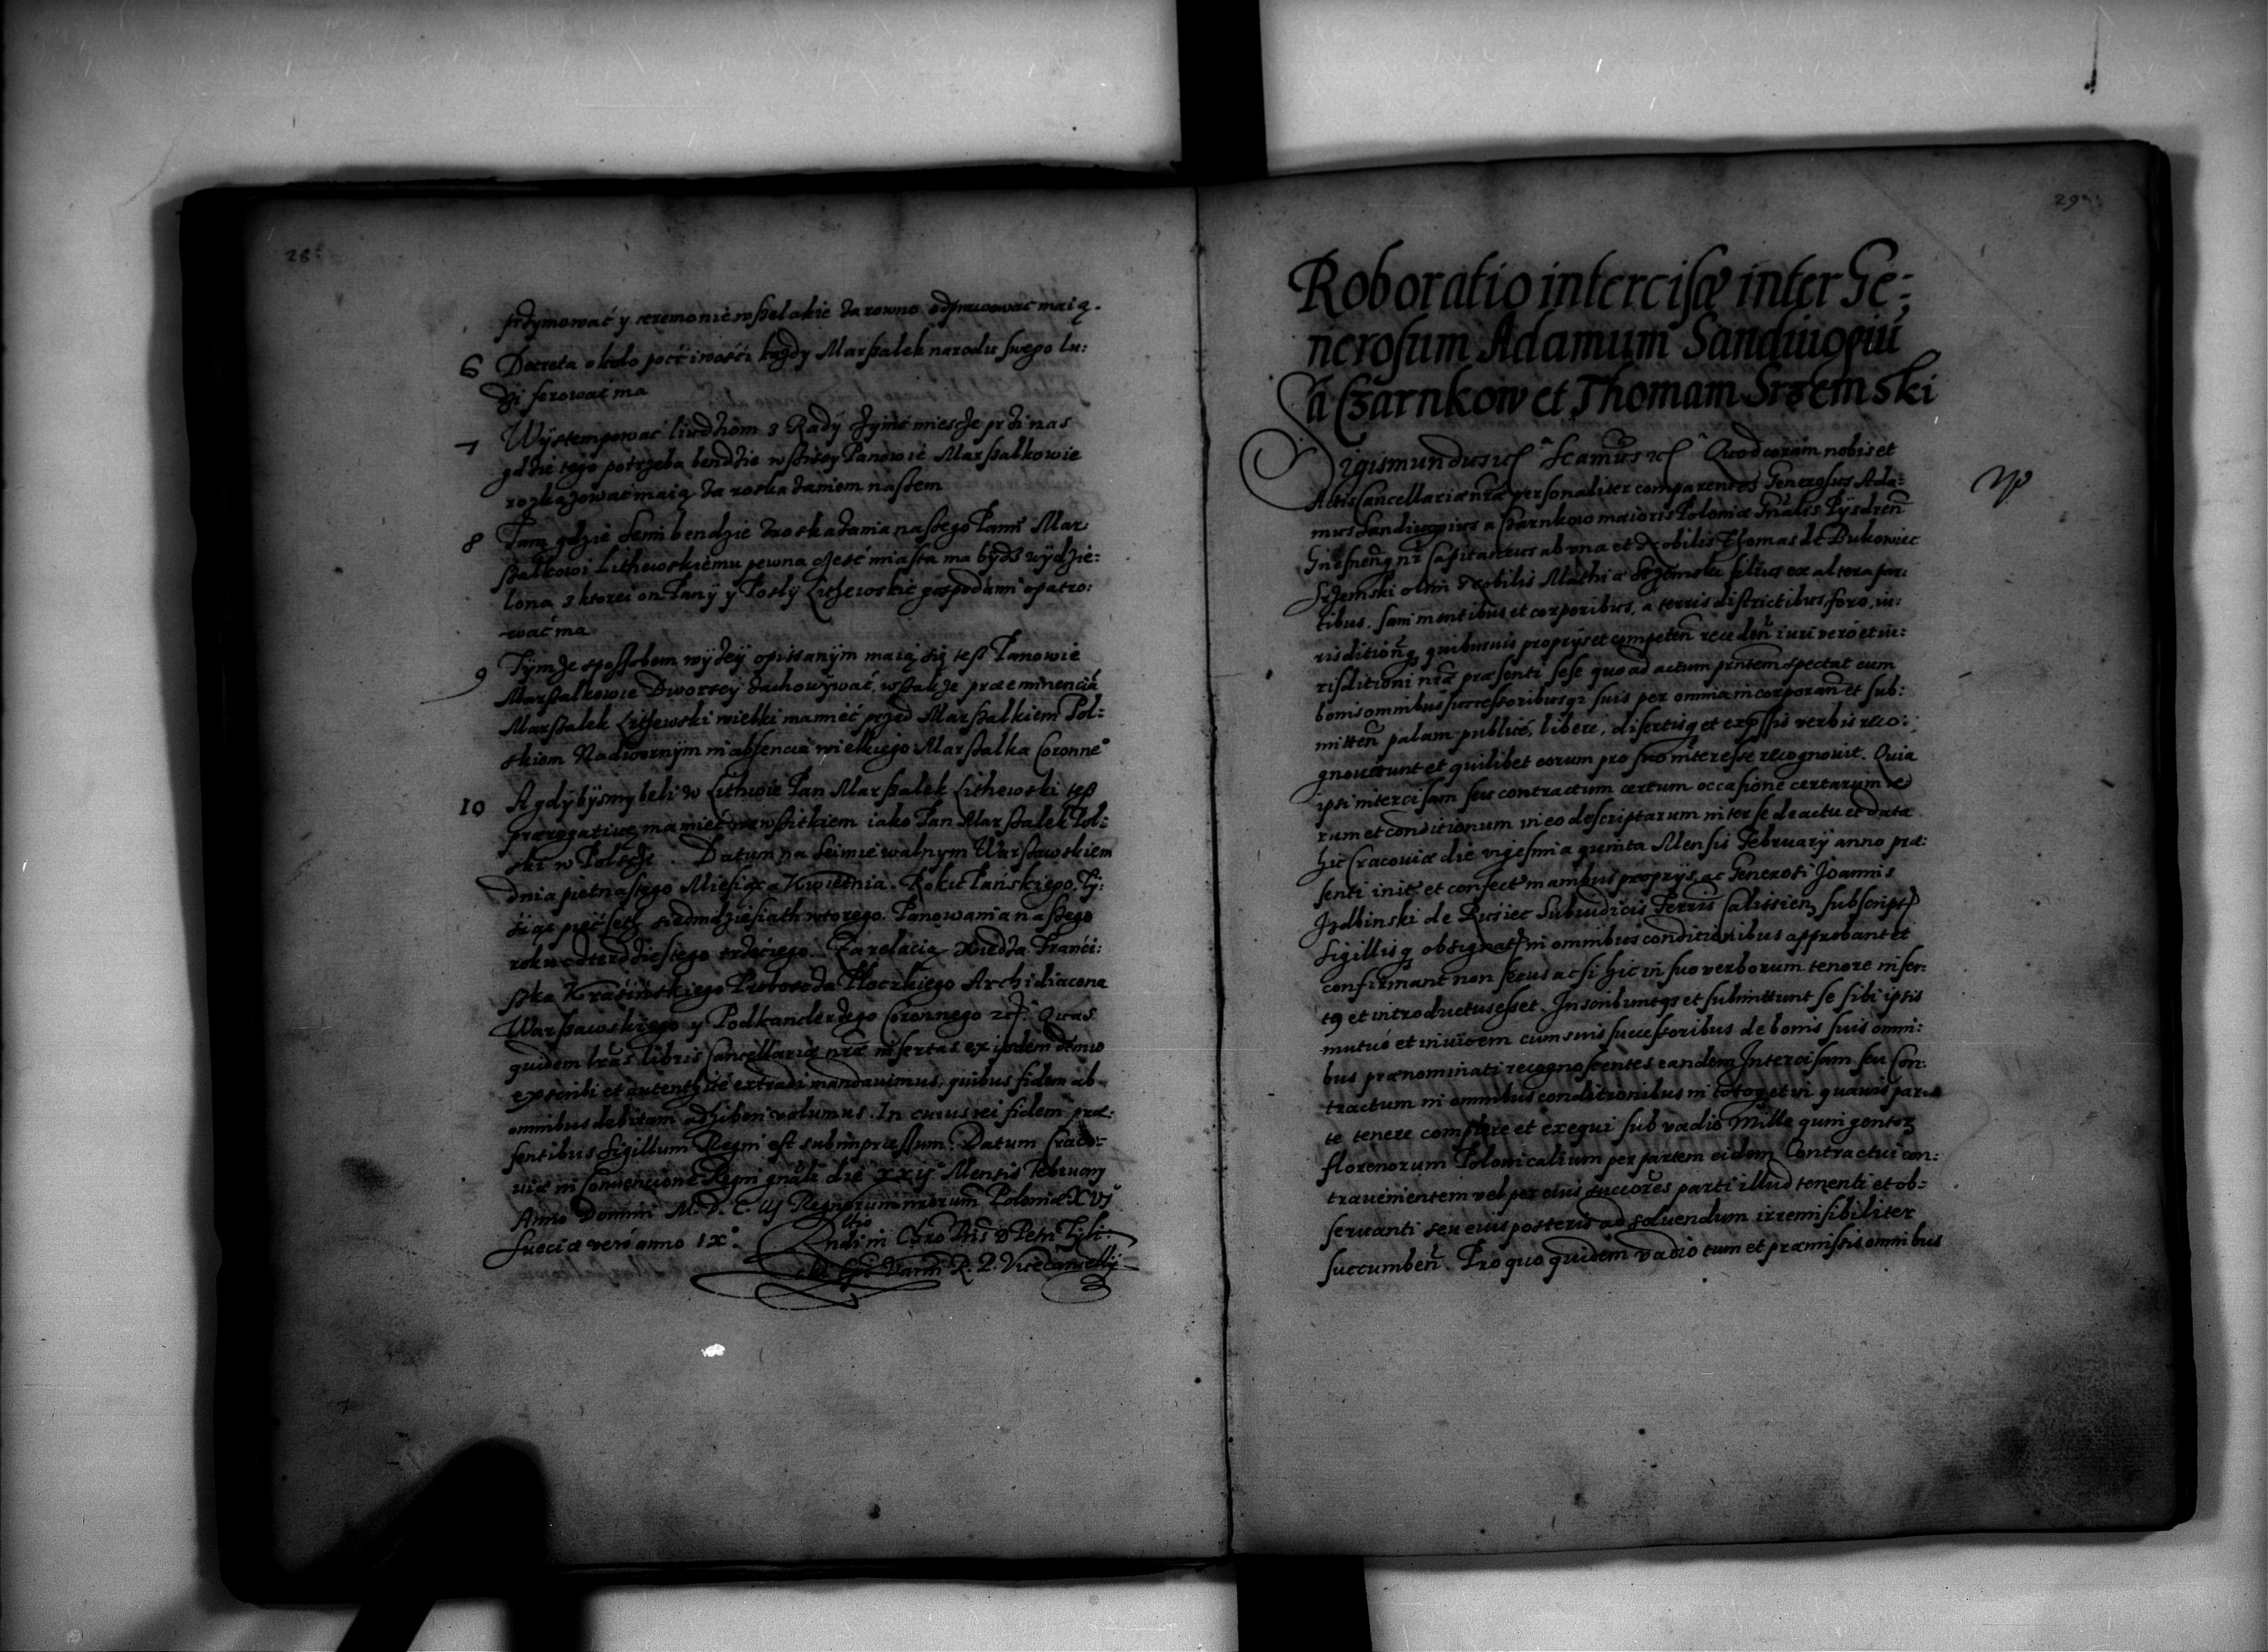 28
przymować y ceremonie wszelakie za rowno odprawować maią.
6 Decreta około poćciwości każdy Marszałek narodu swego lu:
dzi ferować ma
7 Wystempować liudziom z Rady czynić miescze przi nas
gdzie tego potrzeba bendzie wszitcy Panowie Marszałkowie
rozkazować maią za roskazaniem naszem
8 Tam gdzie Seim bendzie z roskazania naszego Panu Mar:
szałkowi Lithewskiemu pewna część miasta ma bydz wydzie:
lona z ktorei on Pany y Posły Lithewskie gospodami opatro:
wać ma
9 Tymże sposobem wyżey opissanym maią się tesz Panowie
Marszałkowie Dworscy zachowywać, wszakże præeminencią
Marszałek Lithewski wielki ma mieć przed Marszałkiem Pol:
skiem Nadwornym in absencia wielkiego Marszałka Coronne°
10 A gdybysmy beli w Lithwie Pan Marszałek Lithewski tesz
prærogatiuę ma mieć we wszitkiem iako Pan Marszałek Pol:
ski w Polscze. Datum na Seimie walnym Warszawskiem
dnia pietnastego Miesiąca Kwietnia. Roku Pańskiego, Ty:
siąc pięć seth siedmdziesiath wtorego. Panowania naszego
roku czterdziestego trzeciego. Za relacią Xiedza Franci:
szka Krasinskiego Proboscza Płoczkiego Archidiacona
Warszawskiego y Podkanclerzego Coronnego etc. Quas
quidem lr̃as libris Cancellariæ nr̃æ insertas ex ijsdem denuo
exscribi et autenthice extradi mandauimus, quibus fidem ab
omnibus debitam adhiberi volumus. In cuius rei fidem præ:
sentibus Sigillum Regni est subimpressum. Datum Craco:
uiæ in Conuencione Regni gnãli die XXij Mensis February
Anno Domini M.D.C.iij Regnorum nr̃orum Poloniæ XVj
Sueciæ vero anno IX°.
R. P. Vicecancellij
29
Roboratio intercisæ inter Ge-
nerosum Adamum Sandiuogiũ
a Czarnkow et Thomam Srzemski
Sigismundus etc. Scamus etc. Quod coram nobis et
Actis Cancellariæ nr̃æ personaliter comparentes Generosus Ada:
mus Sandiuogius a Czarnkow maioris Poloniæ Gñalis Pysdreñ
Gnesneñq nr̃ Capitaneus ab vna et Nobilis Thomas de Bukowiec
Srzemski olim Nobilis Mathiæ Srzemski filius ex altera par:
tibus. Sani mentibus et corporibus, a terris districtibus, foro, iu:
risditioñq quibusuis proprijs et competeñ recedeñ iuri vero et iu:
risditioni nr̃æ præsenti sese quo ad actum pr̃ntem spectat cum
bonis omnibus successoribusq suis per omnia incorporañ et sub:
mitteñ palam publicé, libere, discretisq et exp̃ssis verbis reco:
gnouerunt et quilibet eorum pro suo interesse recognouit. Quia
ipsi intercisam seu contractum certum occasione certarum re
rum et conditionum in eo descriptarum inter se de actu et data
hic Cracouiæ die vigesima quinta Mensis February anno præ:
senti init et confect manibus proprijs, ac Generosi Joannis
Izdbinski de Rusiec Subiudicis Terris Calissieñ subscript
Sigillisq obsignat in omnibus conditionibus approbant et
confirmant non secus ac si hic in suo verborum tenore inser:
tq et introductus esset. Inscribuntq et submittunt se sibi ipsis
mutuó et inuicem cum suis successoribus de bonis suis omni:
bus prænominati recognoscentes eandem Intercisam seu Con:
tractum in omnibus conditionibus in totoq et in quauis par:
te tenere complere et exequi sub vadio Mille quingentor
florenorum Polonicalium per partem eidem Contractui con:
trauenientem vel per eius succores parti illud tenenti et ob:
seruanti seu eius posteris ad soluendum irremisibiliter
succumbeñ. Pro quo quidem vadio tum et præmissis omnibus